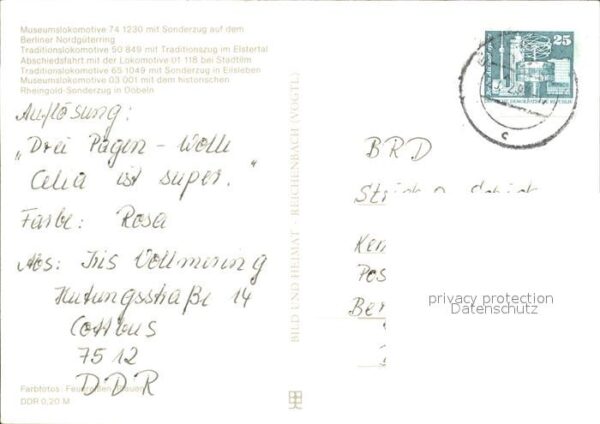 Museumslokomotive 74 1230 mit Sonderzug auf dem
Berliner Nordgüterring
Traditionslokomotive 50 849 mit Traditionszug im Elstertal
Abschiedsfahrt mit der Lokomotive 01 118 bei Stadtilm
Traditionslokomotive 65 1049 mit Sonderzug in Eilsleben
Museumslokomotive 03 001 mit dem historischen
Rheingold-Sonderzug in Döbeln
Auflösung:
„Drei Pagen - Wolle
Celia ist super."
Farbe: Rosa
Abs: Iris Vollmering
Hutungsstraße 14
Cottbus
7512
DDR
Farbfotos
DDR 0,20 M
BILD UND HEIMAT · REICHENBACH (VOGTL)
25
BRD
Ken
Pos
Ber
privacy protection
Datenschutz